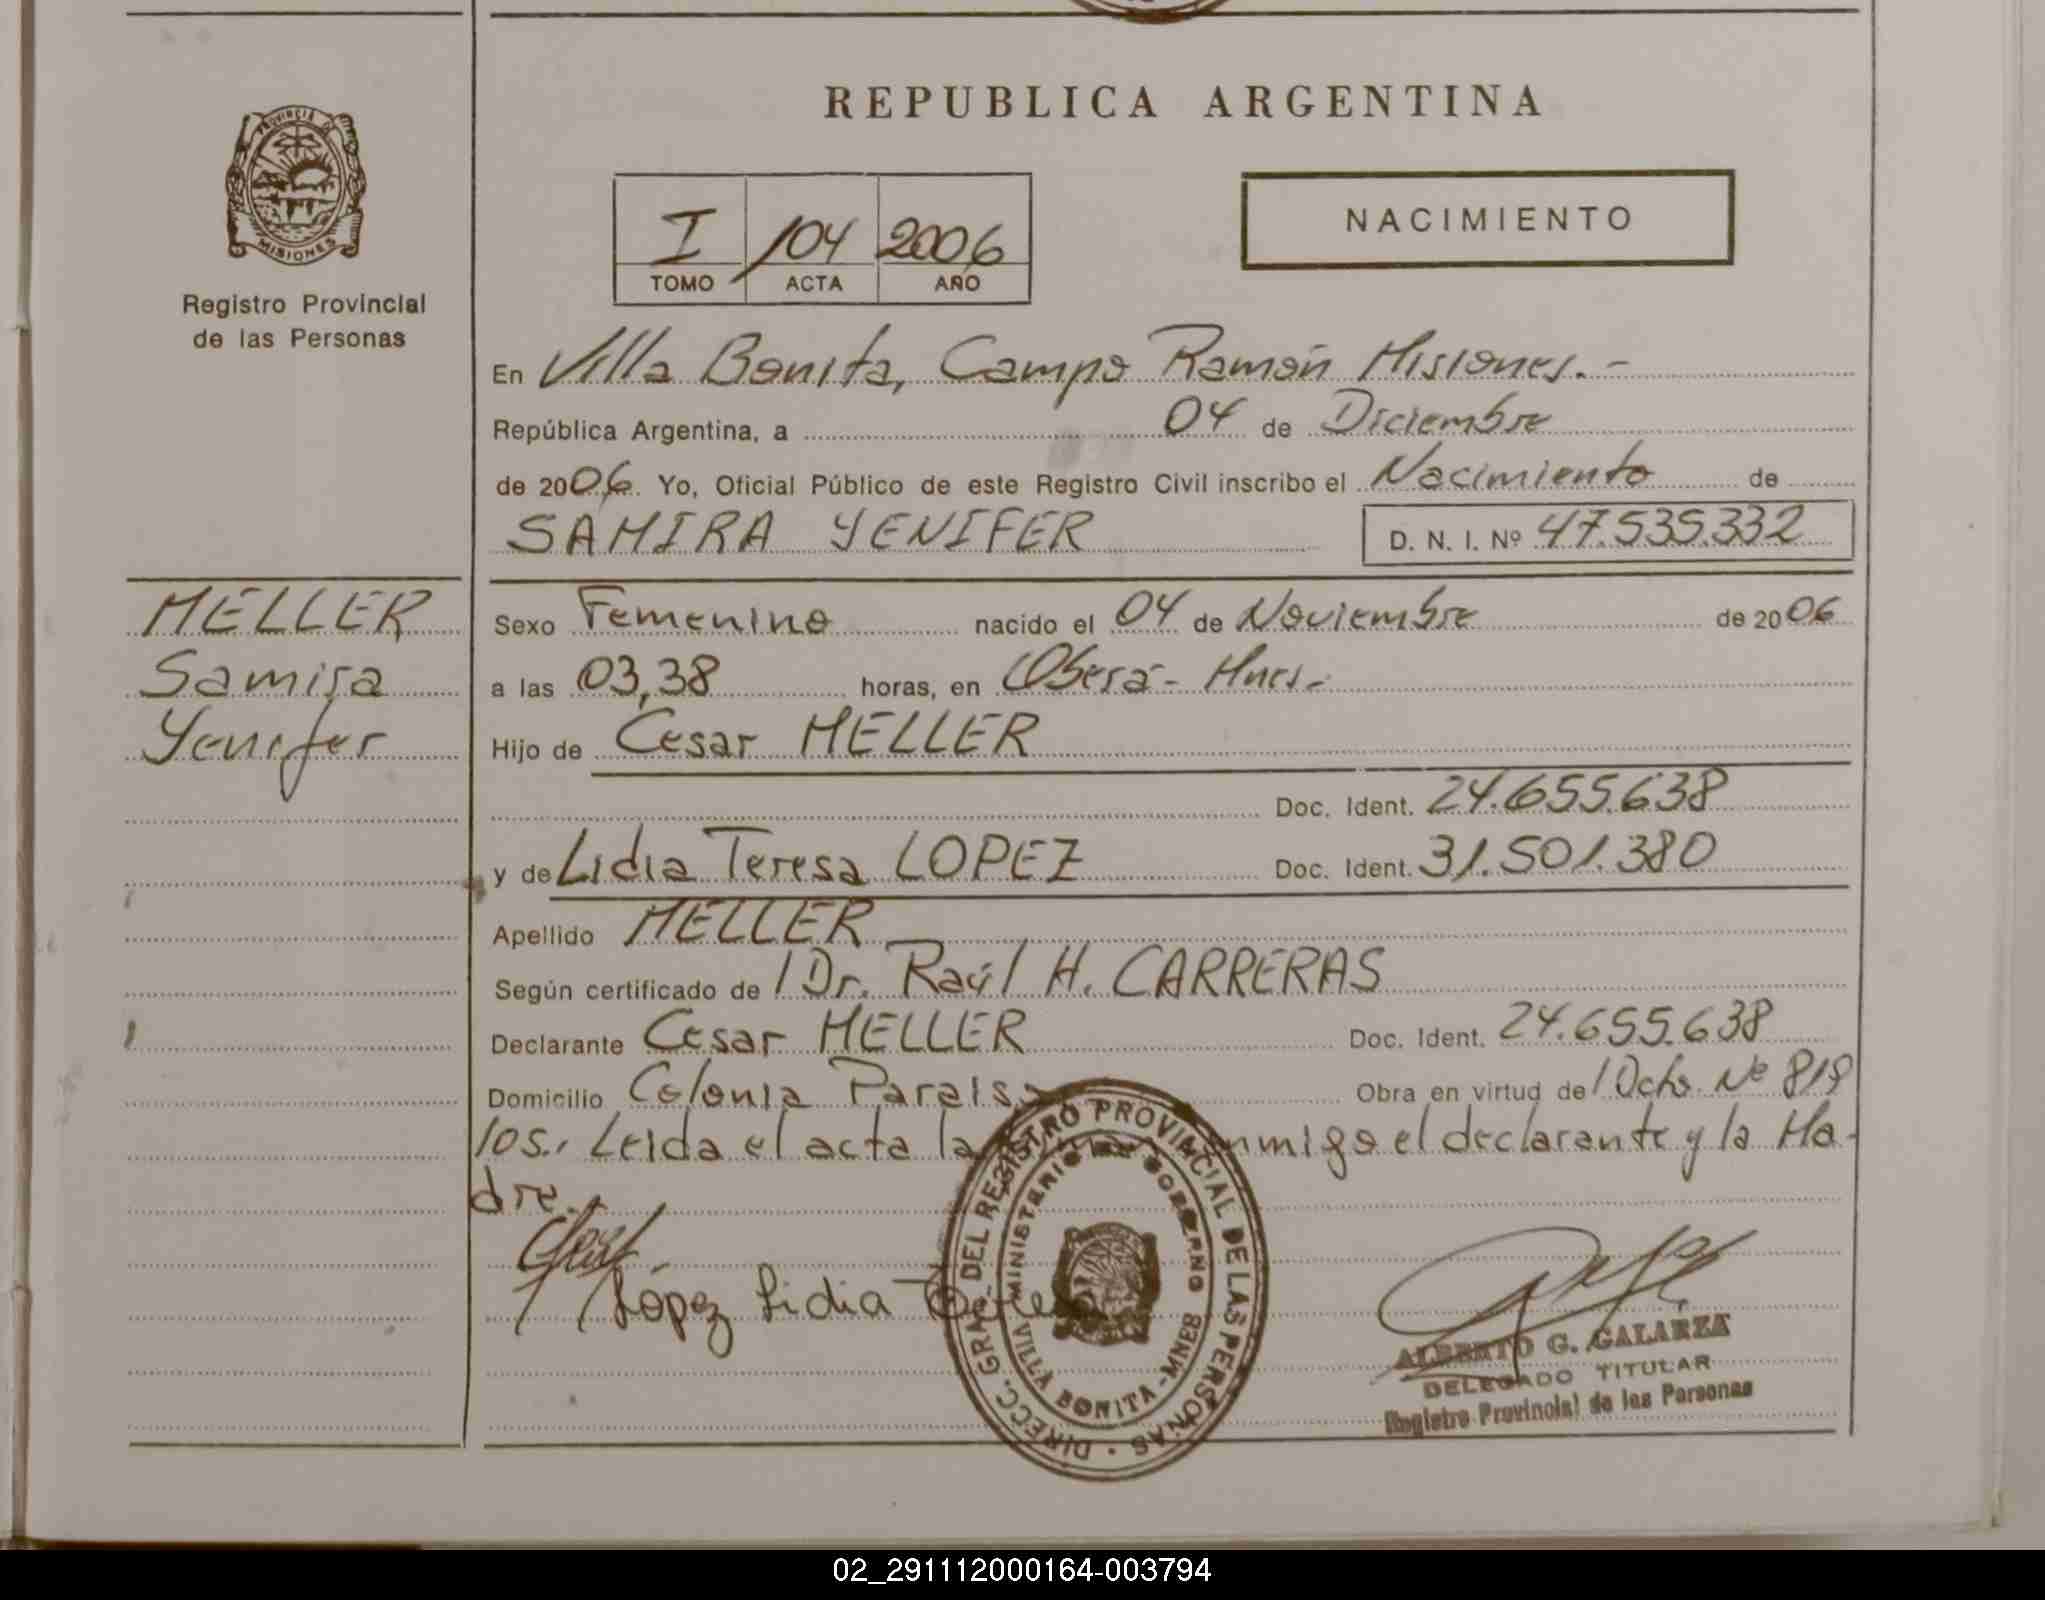 REPUBLICA ARGENTINA
PROVINCIA DE
MISIONES
Registro Provincial
de las Personas
I 104 2006
TOMO ACTA AÑO
NACIMIENTO
En Villa Bonita, Campo Ramón Misiones.-
República Argentina, a 04 de Diciembre
de 2006. Yo, Oficial Público de este Registro Civil inscribo el Nacimiento de
SAMIRA YENIFER D. N. I. Nº 47.535.332
MELLER
Samira
Yenifer
Sexo Femenino nacido el 04 de Noviembre de 2006
a las 03,38 horas, en Oberá- Mnes.-
Hijo de Cesar MELLER
Doc. Ident. 24.655.638
y de Lidia Teresa LOPEZ Doc. Ident. 31.501.380
Apellido MELLER
Según certificado de Dr. Raúl H. CARRERAS
Declarante Cesar MELLER Doc. Ident. 24.655.638
Domicilio Colonia Paraiso Obra en virtud de Dcto. Nº 819
los., Leida el acta la el declarante y la Ma-
dre.
López Lidia
DIRECC. GRAL. DEL REGISTRO PROVINCIAL DE LAS PERSONAS
MINISTERIO DE GOBIERNO
VILLA BONITA - MNES
ALBERTO G. GALARZA
DELEGADO TITULAR
Registro Provincial de las Personas
02_291112000164-003794